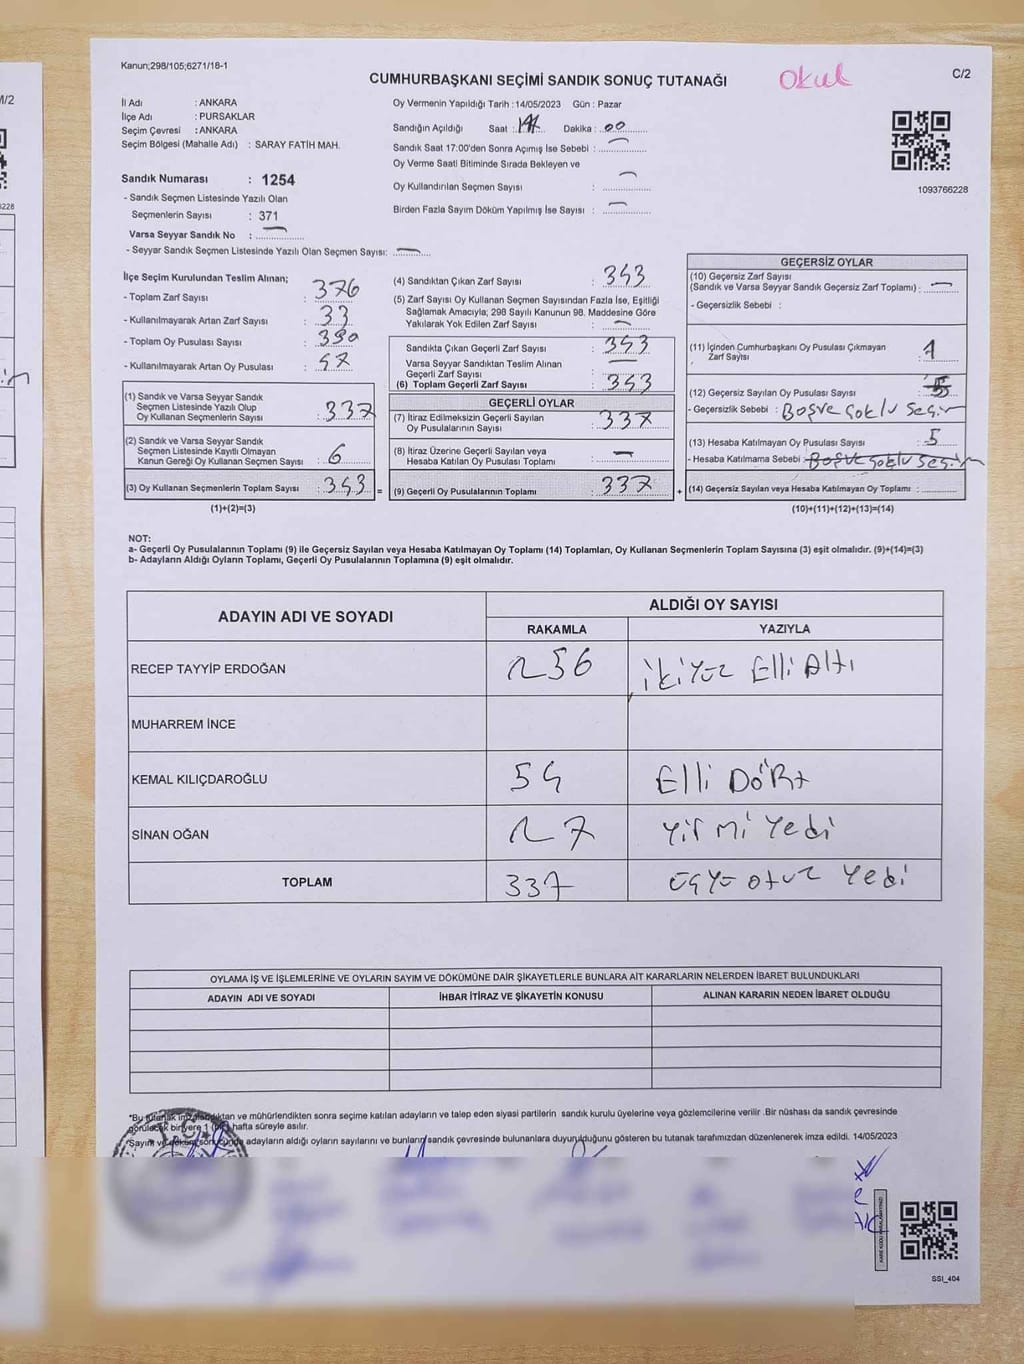 Kanun;298/105;6271/18-1
CUMHURBAŞKANI SEÇİMİ SANDIK SONUÇ TUTANAĞI
Okul
C/2
M/2
İl Adı : ANKARA
İlçe Adı : PURSAKLAR
Seçim Çevresi : ANKARA
Seçim Bölgesi (Mahalle Adı) : SARAY FATİH MAH.
Oy Vermenin Yapıldığı Tarih : 14/05/2023 Gün : Pazar
Sandığın Açıldığı Saat : Dakika : 00
Sandık Saat 17:00'den Sonra Açımış İse Sebebi : —
Oy Verme Saati Bitiminde Sırada Bekleyen ve
Oy Kullandırılan Seçmen Sayısı : —
Birden Fazla Sayım Döküm Yapılmış İse Sayısı : —
1093766228
Sandık Numarası : 1254
- Sandık Seçmen Listesinde Yazılı Olan
Seçmenlerin Sayısı : 371
Varsa Seyyar Sandık No : —
- Seyyar Sandık Seçmen Listesinde Yazılı Olan Seçmen Sayısı: —
İlçe Seçim Kurulundan Teslim Alınan;
- Toplam Zarf Sayısı : 376
- Kullanılmayarak Artan Zarf Sayısı : 33
- Toplam Oy Pusulası Sayısı : 390
- Kullanılmayarak Artan Oy Pusulası : 47
(1) Sandık ve Varsa Seyyar Sandık
Seçmen Listesinde Yazılı Olup
Oy Kullanan Seçmenlerin Sayısı : 337
(2) Sandık ve Varsa Seyyar Sandık
Seçmen Listesinde Kayıtlı Olmayan
Kanun Gereği Oy Kullanan Seçmen Sayısı : 6
(3) Oy Kullanan Seçmenlerin Toplam Sayısı : 343 =
(1)+(2)=(3)
(4) Sandıktan Çıkan Zarf Sayısı : 343
(5) Zarf Sayısı Oy Kullanan Seçmen Sayısından Fazla İse, Eşitliği
Sağlamak Amacıyla; 298 Sayılı Kanunun 98. Maddesine Göre
Yakılarak Yok Edilen Zarf Sayısı : —
Sandıkta Çıkan Geçerli Zarf Sayısı : 343
Varsa Seyyar Sandıktan Teslim Alınan
Geçerli Zarf Sayısı : —
(6) Toplam Geçerli Zarf Sayısı : 343
GEÇERLİ OYLAR
(7) İtiraz Edilmeksizin Geçerli Sayılan
Oy Pusulalarının Sayısı : 337
(8) İtiraz Üzerine Geçerli Sayılan veya
Hesaba Katılan Oy Pusulası Toplamı : —
(9) Geçerli Oy Pusulalarının Toplamı : 337 +
GEÇERSİZ OYLAR
(10) Geçersiz Zarf Sayısı
(Sandık ve Varsa Seyyar Sandık Geçersiz Zarf Toplamı) : —
- Geçersizlik Sebebi :
(11) İçinden Cumhurbaşkanı Oy Pusulası Çıkmayan
Zarf Sayısı : 1
(12) Geçersiz Sayılan Oy Pusulası Sayısı : 5
- Geçersizlik Sebebi : Boş ve Çoklu Seçim
(13) Hesaba Katılmayan Oy Pusulası Sayısı : 5
- Hesaba Katılmama Sebebi : Boş ve Çoklu Seçim
(14) Geçersiz Sayılan veya Hesaba Katılmayan Oy Toplamı :
(10)+(11)+(12)+(13)=(14)
NOT:
a- Geçerli Oy Pusulalarının Toplamı (9) ile Geçersiz Sayılan veya Hesaba Katılmayan Oy Toplamı (14) Toplamları, Oy Kullanan Seçmenlerin Toplam Sayısına (3) eşit olmalıdır. (9)+(14)=(3)
b- Adayların Aldığı Oyların Toplamı, Geçerli Oy Pusulalarının Toplamına (9) eşit olmalıdır.
ADAYIN ADI VE SOYADI
ALDIĞI OY SAYISI
RAKAMLA YAZIYLA
RECEP TAYYİP ERDOĞAN 256 İkiyüz Elli Altı
MUHARREM İNCE
KEMAL KILIÇDAROĞLU 54 Elli Dört
SİNAN OĞAN 27 Yirmi Yedi
TOPLAM 337 Üçyü otuz Yedi
OYLAMA İŞ VE İŞLEMLERİNE VE OYLARIN SAYIM VE DÖKÜMÜNE DAİR ŞİKAYETLERLE BUNLARA AİT KARARLARIN NELERDEN İBARET BULUNDUKLARI
ADAYIN ADI VE SOYADI İHBAR İTİRAZ VE ŞİKAYETİN KONUSU ALINAN KARARIN NEDEN İBARET OLDUĞU
*Bu tutanak imzalandıktan ve mühürlendikten sonra seçime katılan adayların ve talep eden siyasi partilerin sandık kurulu üyelerine veya gözlemcilerine verilir .Bir nüshası da sandık çevresinde
görülecek bir yere 1 (bir) hafta süreyle asılır.
*Sayım ve döküm sonucunda adayların aldığı oyların sayılarını ve bunların sandık çevresinde bulunanlara duyurulduğunu gösteren bu tutanak tarafımızdan düzenlenerek imza edildi. 14/05/2023
SSI_404